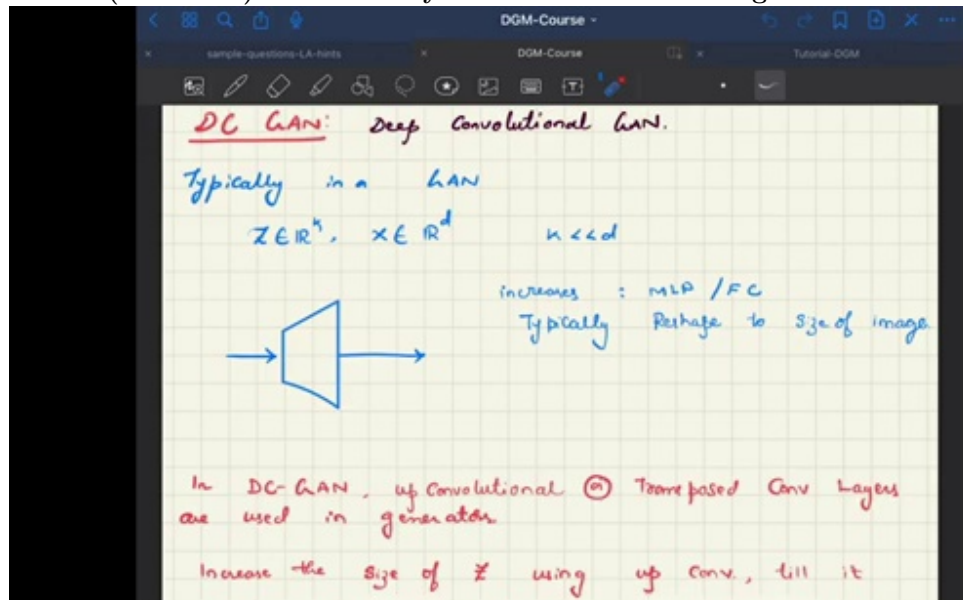 DGM-Course
sample-questions-LA-hints
DGM-Course
Tutorial-DGM
DC GAN: Deep Convolutional GAN.
Typically in a GAN
Z ∈ ℝᵏ, x ∈ ℝᵈ k << d
increases : MLP / FC
Typically Reshape to size of image
In DC-GAN, up convolutional or Transposed Conv Layers
are used in generators
Increase the size of Z using up conv., till it